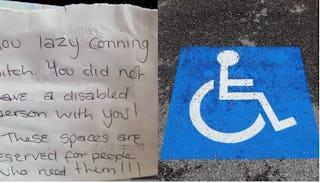 ou lazy conning
itch. You did not
ave a disabled
erson with you!
These spaces are
eserved for people
who need them!!!